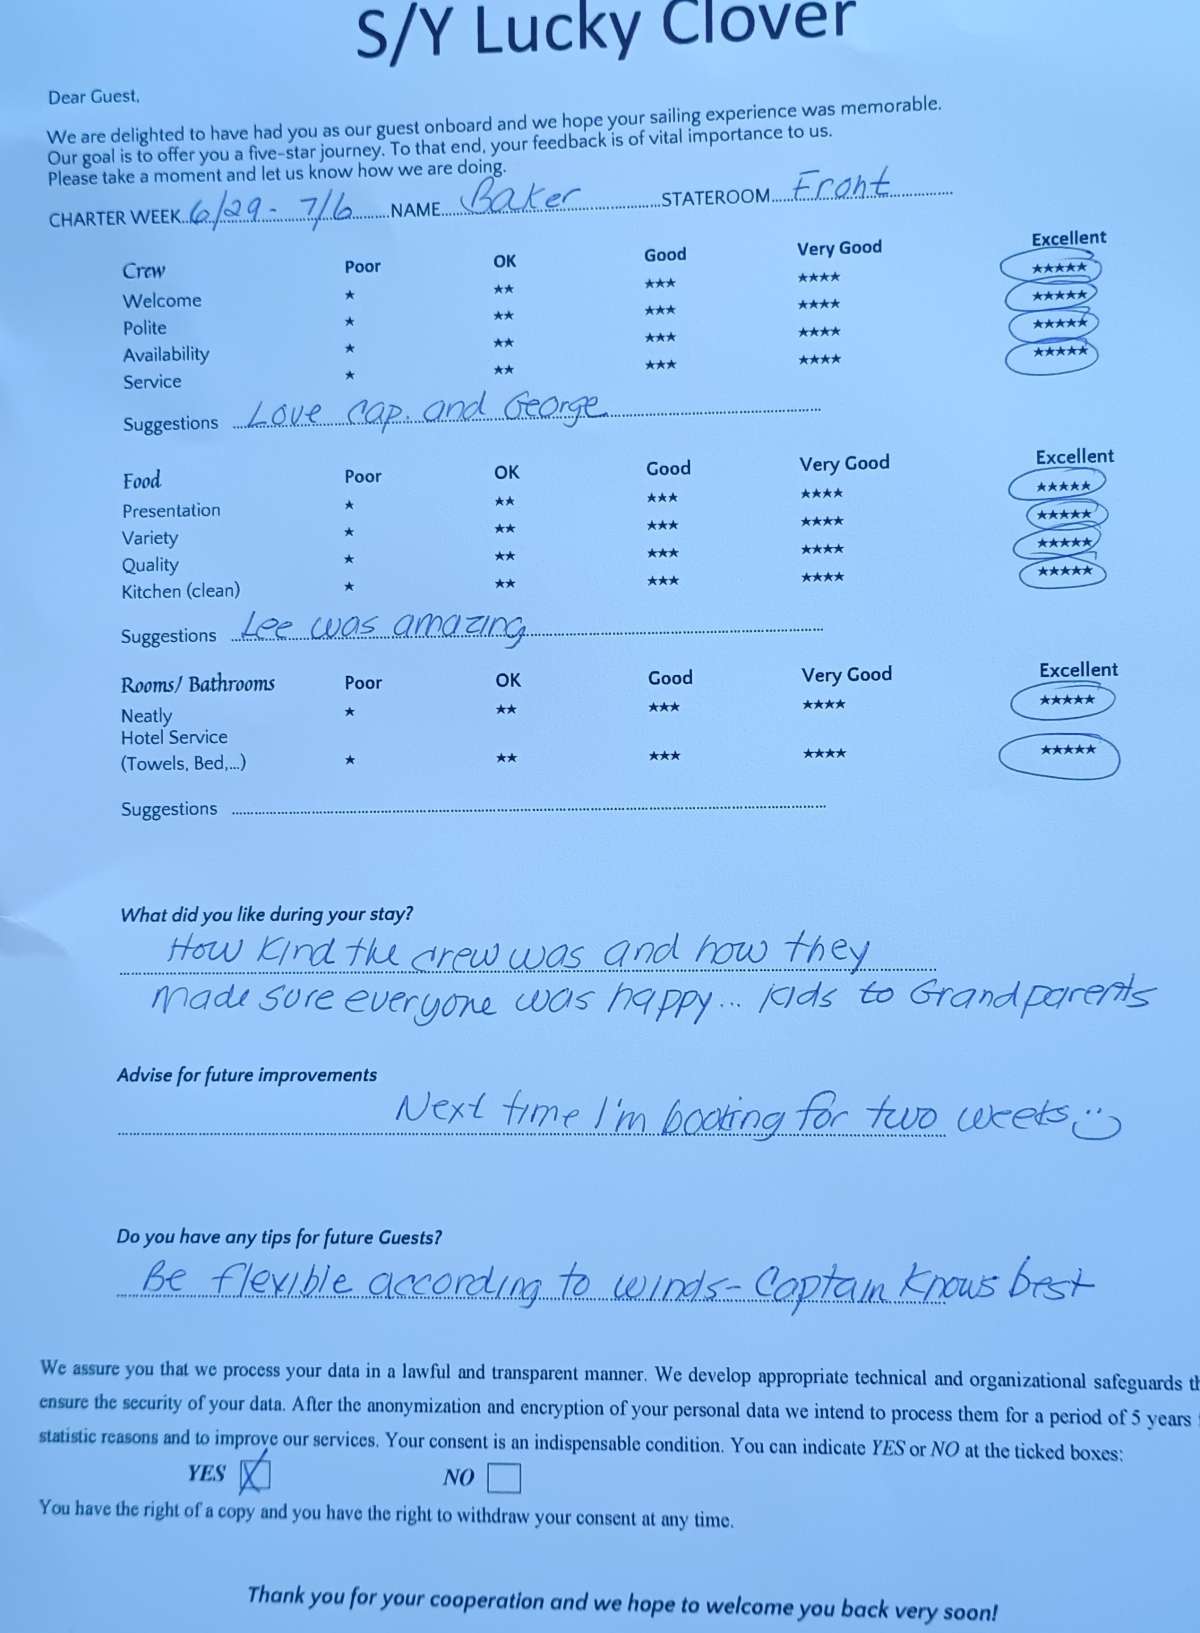 S/Y Lucky Clover
Dear Guest,
We are delighted to have had you as our guest onboard and we hope your sailing experience was memorable.
Our goal is to offer you a five-star journey. To that end, your feedback is of vital importance to us.
Please take a moment and let us know how we are doing.
CHARTER WEEK 6/29 - 7/6 NAME Baker STATEROOM Front
Crew Poor OK Good Very Good Excellent
Welcome ★ ★★ ★★★ ★★★★ ★★★★★
Polite ★ ★★ ★★★ ★★★★ ★★★★★
Availability ★ ★★ ★★★ ★★★★ ★★★★★
Service ★ ★★ ★★★ ★★★★ ★★★★★
Suggestions Love cap. and George
Food Poor OK Good Very Good Excellent
Presentation ★ ★★ ★★★ ★★★★ ★★★★★
Variety ★ ★★ ★★★ ★★★★ ★★★★★
Quality ★ ★★ ★★★ ★★★★ ★★★★★
Kitchen (clean) ★ ★★ ★★★ ★★★★ ★★★★★
Suggestions Lee was amazing
Rooms/ Bathrooms Poor OK Good Very Good Excellent
Neatly ★ ★★ ★★★ ★★★★ ★★★★★
Hotel Service
(Towels, Bed,...) ★ ★★ ★★★ ★★★★ ★★★★★
Suggestions
What did you like during your stay?
How kind the crew was and how they
made sure everyone was happy... kids to Grandparents
Advise for future improvements
Next time I'm booking for two weeks :)
Do you have any tips for future Guests?
Be flexible according to winds - Captain knows best
We assure you that we process your data in a lawful and transparent manner. We develop appropriate technical and organizational safeguards
ensure the security of your data. After the anonymization and encryption of your personal data we intend to process them for a period of 5 years
statistic reasons and to improve our services. Your consent is an indispensable condition. You can indicate YES or NO at the ticked boxes:
YES X NO
You have the right of a copy and you have the right to withdraw your consent at any time.
Thank you for your cooperation and we hope to welcome you back very soon!